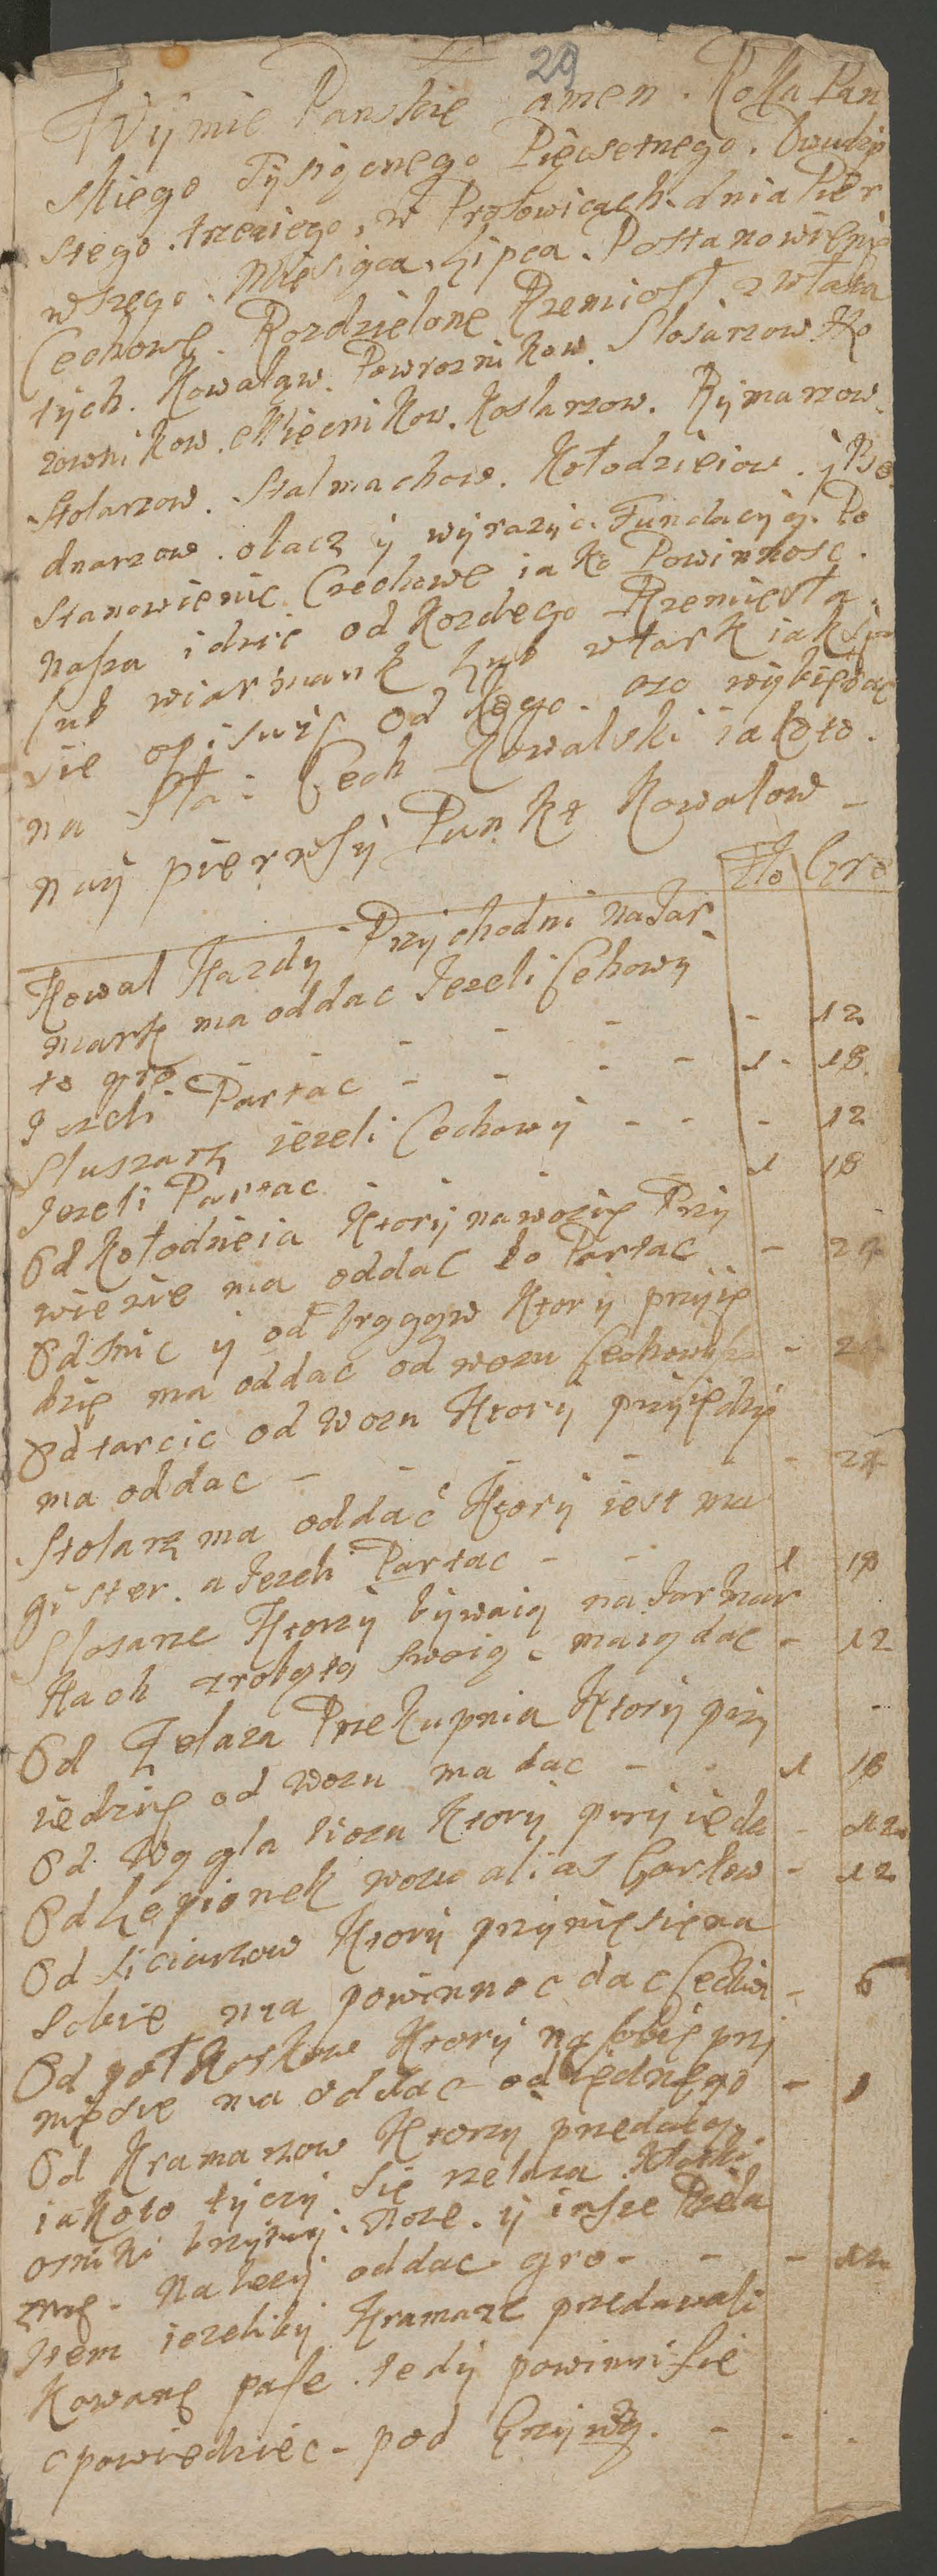 29
W ymie Panskie amen. Roku Pan
skiego Tysiącnego Pięcsetnego. Dwudzie
stego. trzeciego, w Protowicach. dnia Pier
wszego. Miesiąca Lipca. Postanowienie
Cechowe. Rozdzielone Rzemiosł zwłasz
tych. Kowalow. Powroznikow. Slosarzow Ko
zownikow. Miecnikow. Koslarzow. Rymarzow.
Stolarzow. Stalmachow. Kołodzieiow. y Be
dnarzow. obacz y wyrazyc. Fundacyią. Po
stanowienie Cechowe iako Powinnosc.
nasza idzie od kozdego Rzemiesła.
lub wiarmank lub wtark iak
sie opisuie od kogo. oto
na Cech Kowalski iakoto.
nay pierwszy Punkt Kowalow -
Zło Gro
Kowal Kazdy Przychodni na Jar
mark ma oddac Jezeli Cehowy
to gro - - - - - 12
Jezeli Partac - - - - 1 - 18
Slusarz iezeli Cechowy - - - 12
Jezeli Partac 1 18
Od Kołodzieia Ktory nawozie Przy
wiezie ma oddac to Partac - 24
Od Snic y od Ktory przyie
dzie ma oddac od wozu - 24
Od tarcic od Wozu Ktory przyiedzie
ma oddac - - - - - 24
Stolarz ma oddać Ktory iest ma
gister. a Jezeli Partac - - 1 18
Slosarze Ktorzy bywaią na Jarmar
kach zrobotą swoią. maią dac - 12
Od Zelaza Przekupnia Ktory przy -
iedzie od wozu ma dac - - 1 18
Od Węgla wozu Ktory przyieda - 12
Od Lepionek wozu alias Garkow - 12
Od Ktory przyniesie na
sobie ma powinnoc dac - 6
Od Ktory na sobie przy
niesie ma oddac od iednego -
Od Kramarzow Ktorzy przedaią
iakoto tyczy sie zelaza Kłotki
brzytwy. Noze. y insze
Nalezy oddac gro - - - 12
Item iezeliby Kramarze przedawali
Kowane pase. tedy powinni sie
opowiedziec - pod Grzywną. - - .